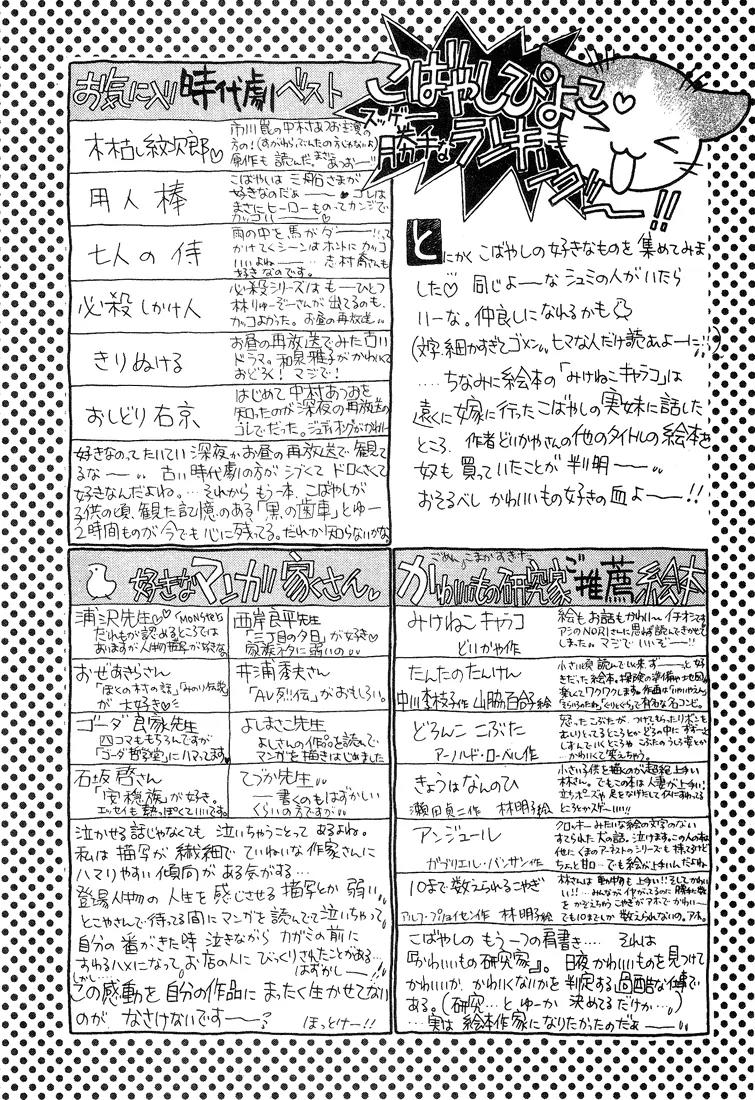 こばやしぴよこ♡
スッゲー
勝手なランキィイング〜〜!!
とにかく こばやしの好きなものを 集めてみま
した♡ 同じよーな シュミの人がいたら
いーな。仲良しになれるかも
(文字 細かすぎてゴメン。ヒマな人だけ読あよーに!!)
....ちなみに絵本の「みけねこキャラコ」は
遠くに嫁に行った こばやしの実妹に話した
ところ、作者どいかやさんの他のタイトルの絵本を
奴も買っていたことが 判明ーー。
おそるべし かわいいもの好きの血よーー!!
お気に入り 時代劇 ベスト
木枯し紋次郎♡
市川崑の中村あつお主演の
方の!(すがわらぶんたの方じゃないよ)
原作も読んだ。
用人棒
こばやしは 三船さまが
好きなのだぁーー♥コレは
まさにヒーローものってカンジで
カッコいーー
七人の侍
雨の中を馬がダーーッ!!って
かけてくシーンはホントに カッコ
いいよねーー ... 志村喬さんも
好きなのです。
必殺しかけ人
必殺シリーズは もーひとつ
林りゅーぞーさんが出てるのも、
カッコよかった。お昼の再放送。
きりぬける
お昼の再放送でみた古い
ドラマ。和泉雅子がかわいくて
おどろく! マジで!
おしどり右京
はじめて 中村あつおを
知ったのが 深夜の再放送の
コレでだった。ジュディオングがかわい
好きなのって たいてい 深夜か お昼の再放送で 観て
るなーー。古い時代劇の方が シブくて ドロくさくて
好きなんだよね。...それから もう一本、こばやしが
子供の頃、観た記憶のある「黒の歯車」とゆー
2時間ものが 今でも心に残ってる。だれか知らないかな
好きなマンガ家くさん。
浦沢先生♡
「MONSTER」
だれもが認めるところでは
ありますが 人物描写が好きな。
西岸良平先生
「三丁目の夕日」が好き♡
家族ネタに弱いの。
おぜあきらさん
「ぼくの村の話」「みのり伝説」
が 大好き♡
井浦秀夫さん
「AV烈伝」がおもしろい。
ゴーダ良家先生
四コマももちろんですが
「ゴーダ哲学堂」にハマってます♥
よしまさこ先生
よしさんの作品を読んで
マンガを描きはじめました
石坂啓さん
「安穏族」が好き。
エッセイも熱っぽくていいです。
てづか先生。
...書くのもはずかしい
くらいの方ですが。
泣かせる話じゃなくても 泣いちゃうことって あるよね。
私は 描写が 繊細で ていねいな作家さんに
ハマりやすい 傾向が ある気がする...
登場人物の 人生を 感じさせる 描写とか 弱い。
とこやさんで 待ってる間に マンガを 読んでて泣いちゃって。
自分の番がきた時 泣きながら カガミの前に
すわるハメになって。お店の人に びっくりされたことがある...
はずかしーー!!
この感動を 自分の作品に まったく生かせてない
のが なさけないですーー?
ほっとけー!!
ごめん。こまかすぎた。
かわいいもの研究家 ご推薦 絵本
みけねこキャラコ
どいかや作
絵も お話も かわいー イチオシです
アシのNORIさんに思わず読んできかせて
しました。マジでいいぞーー!!
たんたのたんけん
中川李枝子作 山脇百合子絵
小さい頃 読んでいて以来、ずーーっと 好
きだった 絵本。探険の準備や地図が
楽しくて ワクワクします。作画は「いやいやえん」
「そらいろのたね」「ぐりとぐら」で有名な 名コンビ。
どろんここぶた
アーノルド・ローベル作
怒ったこぶたが、つけてもらったリボンを
むしりとってるところとか どろの中に ずずーっと
しずんでいくところや こぶたのうしろ姿とか
かわいくて笑えちゃう。
きょうはなんのひ
瀬田貞二作 林明子絵
小さい子供を描くのが 超絶 上手い
林さん。でもこの本は 人妻が 上手い!
アンジュール
ガブリエル・バンサン作
クロッキーみたいな絵の文字のない
すてられた犬の話。泣けます。この人の本
他に くまのアーネストのシリーズも 持ってるけど
ちょっと甘... でも絵が上手いんだよね
10まで数えられるこやぎ
アルフ・プリョイセン作 林明子絵
林さんは 動物も上手い!! そしてかわい
い!!...みんながイヤがってるのに 勝手に数
を かぞえちゃう こやぎが アホで かわいー
でも10までしか 数えられないの。アホ。
こばやしの もう一つの肩書き.... それは
『かわいいもの研究家』。日夜 かわいいものを見つけて
かわいいか、かわいくないかを 判定する 過酷な仕事で
ある。(研究...と ゆーか 決めてるだけか...。)
...実は 絵本作家に なりたかったのだぁーー。